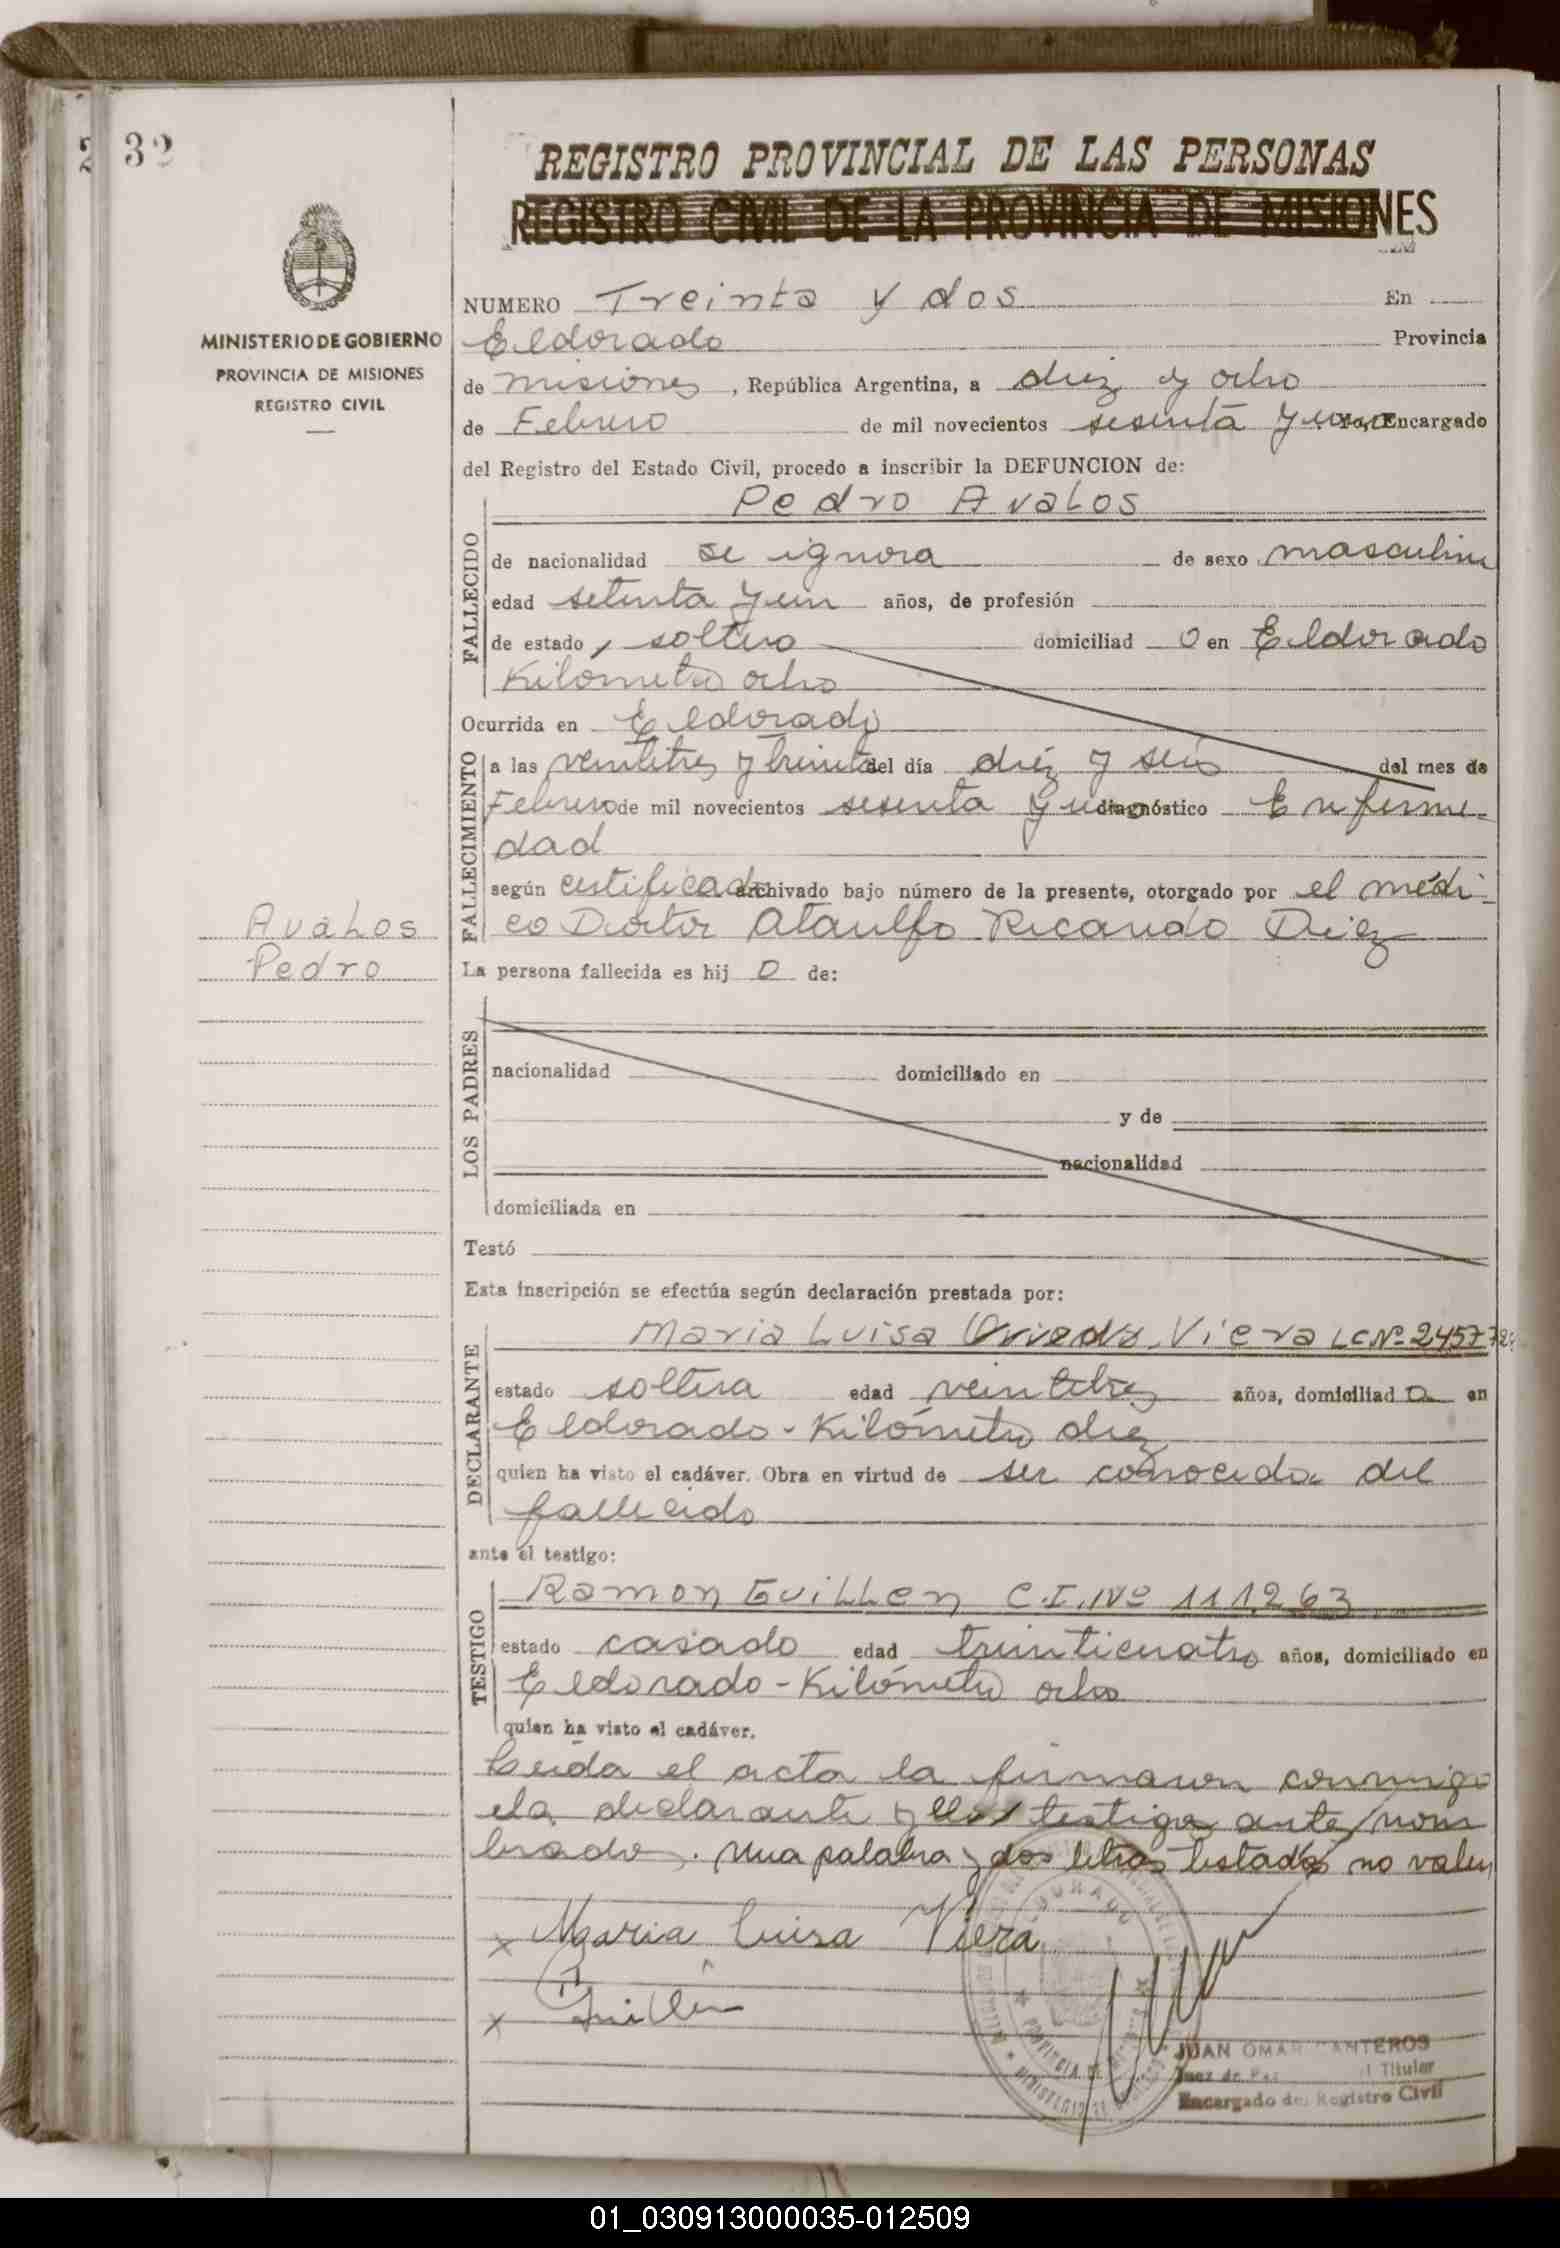 32
REGISTRO PROVINCIAL DE LAS PERSONAS
REGISTRO CIVIL DE LA PROVINCIA DE MISIONES
MINISTERIO DE GOBIERNO
PROVINCIA DE MISIONES
REGISTRO CIVIL
Avalos
Pedro
NUMERO Treinta y dos En
Eldorado Provincia
de Misiones, República Argentina, a diez y ocho
de Febrero de mil novecientos sesenta y uno Yo, Encargado
del Registro del Estado Civil, procedo a inscribir la DEFUNCION de:
Pedro Avalos
FALLECIDO
de nacionalidad se ignora de sexo masculino
edad setenta y un años, de profesión
de estado, soltero domiciliad o en Eldorado
Kilometro ocho
Ocurrida en Eldorado
FALLECIMIENTO
a las veintitres y treinta del día diez y seis del mes de
Febrero de mil novecientos sesenta y uno diagnóstico Enferme-
dad
según certificado archivado bajo número de la presente, otorgado por el medi-
co Doctor Ataulfo Ricardo Diez
La persona fallecida es hij o de:
LOS PADRES
nacionalidad domiciliado en
y de
nacionalidad
domiciliada en
Testó
Esta inscripción se efectúa según declaración prestada por:
DECLARANTE
Maria Luisa Viera LC Nº 245772
estado soltera edad veintitres años, domiciliad a en
Eldorado - Kilómetro diez
quien ha visto el cadáver. Obra en virtud de ser conocida del
fallecido
ante el testigo:
TESTIGO
Ramon Guillen C.I. Nº 111.263
estado casado edad treinticuatro años, domiciliado en
Eldorado - Kilómetro ocho
quien ha visto el cadáver.
Leida el acta la firmaron conmigo
la declarante y el testigo ante nom
brado. Una palabra y dos letras testadas no valen
x Maria Luisa Viera
x Guillén
JUAN OMAR
Titular
Encargado del Registro Civil
01_030913000035-012509